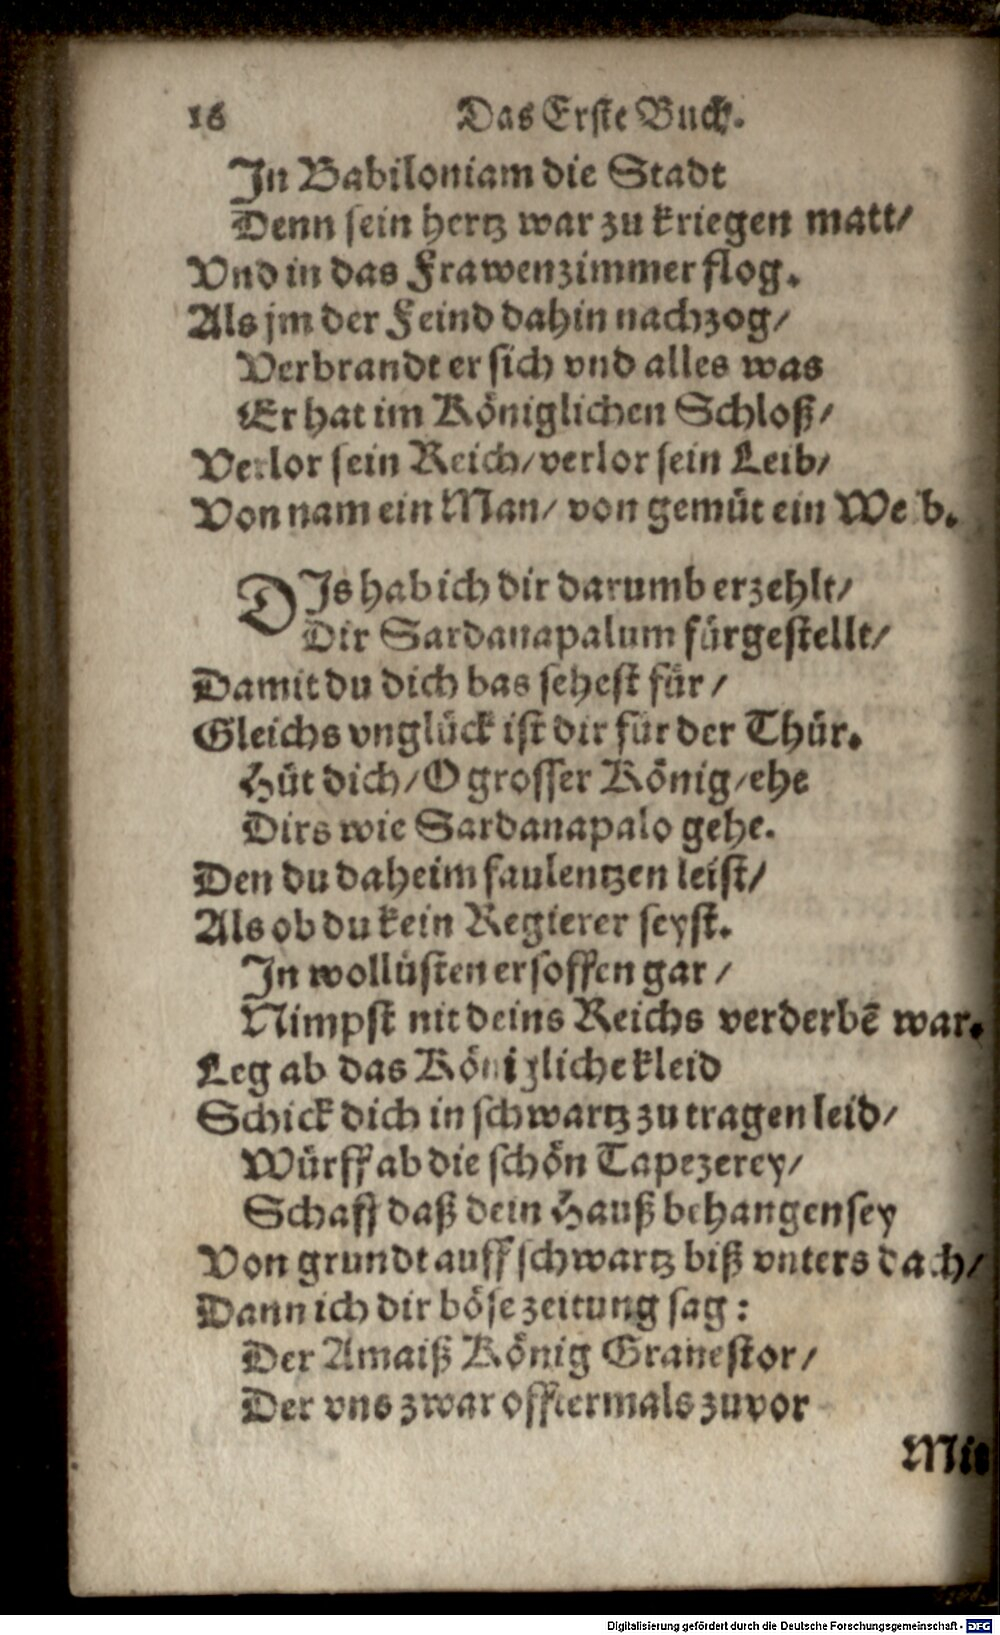 16 Das Erste Buch.
In Babiloniam die Stadt
Denn sein hertz war zu kriegen matt/
Vnd in das Frawenzimmer flog.
Als jm der Feind dahin nachzog/
Verbrandt er sich vnd alles was
Er hat im Königlichen Schloß/
Verlor sein Reich/ verlor sein Leib/
Von nam ein Man/ von gemüt ein Weib.
DIs hab ich dir darumb erzehlt/
Dir Sardanapalum fürgestellt/
Damit du dich bas sehest für/
Gleichs vnglück ist dir für der Thür.
Hüt dich/ O grosser König/ ehe
Dirs wie Sardanapalo gehe.
Den du daheim faulentzen leist/
Als ob du kein Regierer seyst.
In wollüsten ersoffen gar/
Nimpst nit deins Reichs verderbē war.
Leg ab das Königliche kleid
Schick dich in schwartz zu tragen leid/
Würff ab die schön Tapezerey/
Schaff daß dein Hauß behangen sey
Von grundt auff schwartz biß vnters dach/
Dann ich dir böse zeitung sag:
Der Amaiß König Granestor/
Der vns zwar offtermals zuvor
Mit
Digitalisierung gefördert durch die Deutsche Forschungsgemeinschaft - DFG